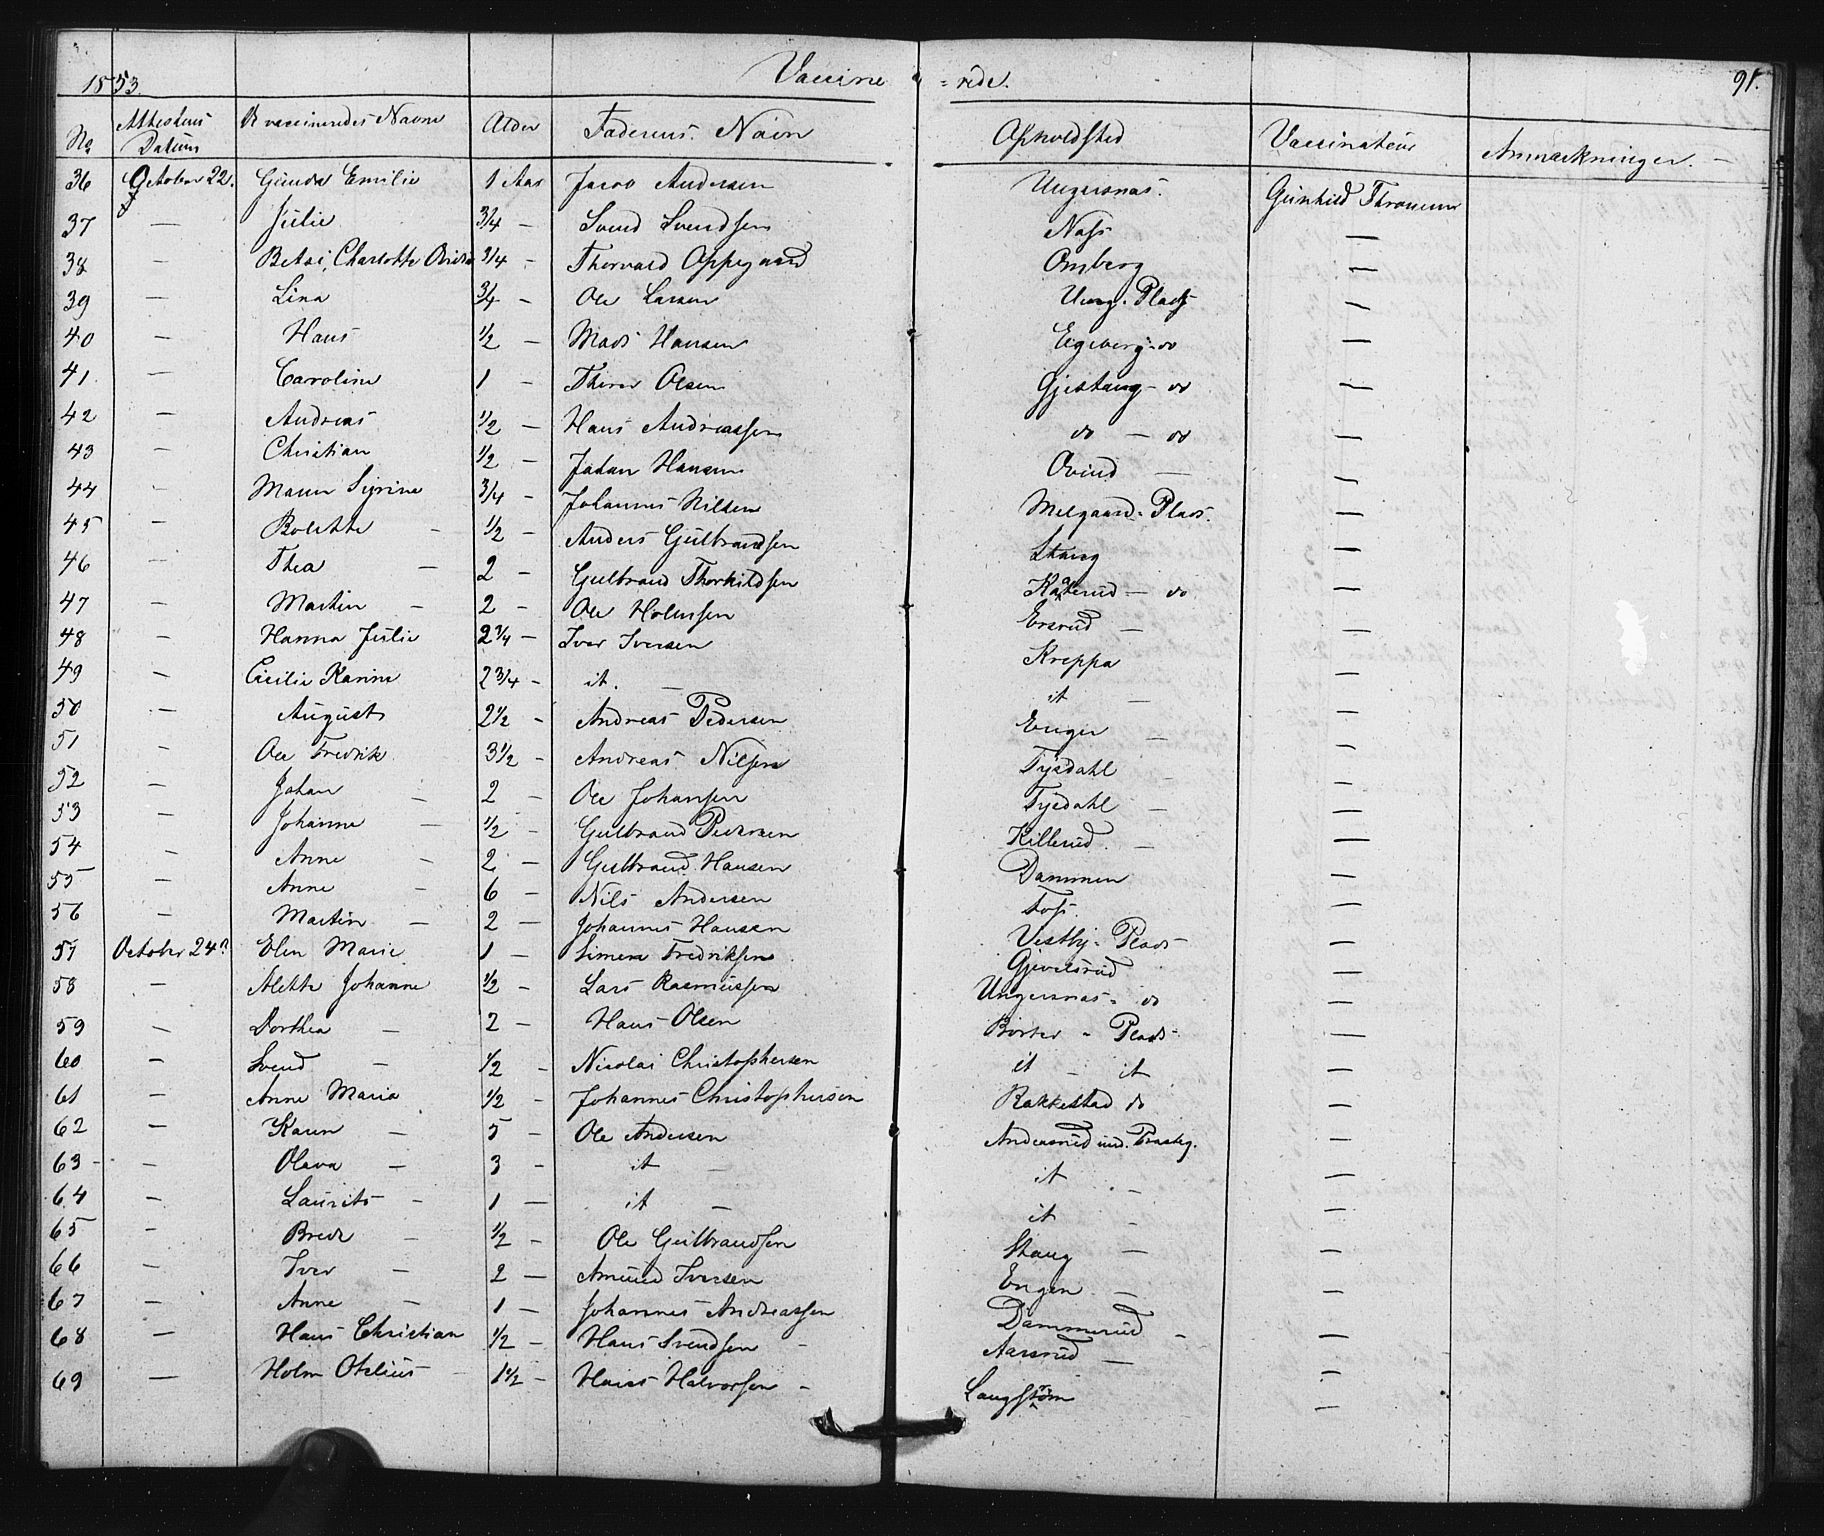 1853. Vaccine = rede. 91.
No Attestens Datum De vaccineredes Navne Alder Faderens Navn Opholdsted Vaccinateur Anmærkninger. —
36 October 22. Gunda Emilie 1 Aar Jacob Andersen Ungersnæs. Gunhild Thronsen
37 — Julie 3/4 — Svend Svendsen Næss —
38 — Betzi, Charlotte 3/4 - Thorvald Oppegaard Omberg —
39 — Lina 3/4 — Ole Larsen Ung. Plads —
40 — Hans 1/2 — Mads Hansen Egeberg - do —
41. — Caroline 1 — Thorer Olsen Gjestang - do —
42 — Andreas 1/2 — Hans Andreassen do — do —
43 — Christian 1/2 — Johan Hansen Ovind — —
44 — Maren Syrine 3/4 — Johannes Nilsen Melgaard - Plads. —
45 — Bolette — 1/2 — Anders Gulbrandsen Stang —
46 — Thea — 2 — Gulbrand Thorkildsen Katerud — do. —
47 — Martin — 2 — Ole Holmsen Ersrud — —
48 — Hanna Julie 2 1/4 — Iver Iversen Kreppa —
49 — Cicilie Karine 2 3/4 — it. — it — —
50 — August 2 1/2 - Andreas Pedersen Enger — —
51 — Ole Fredrik 3 1/2 - Andreas Nilsen Tysdahl — —
52 — Johan — 2 — Ole Johansen Tysdahl — —
53 — Johanne — 1/2 — Gulbrand Pedersen Killerud. — —
54 — Anne — 2 — Gulbrand Hansen Dammen —
55 — Anne — 6 — Nils Andersen Foss. —
56 — Martin — 2 — Johannes Hansen Vestby - Plads —
57 October 24? Elen Marie 1 — Simen Fredriksen Gjevelsrud —
58 — Alette Johanne 1/2 — Lars Rasmussen Ungersnæs - do —
59 — Dorthea — 2 — Hans Olsen Borter - Plads —
60 — Svend — 1/2 — Nicolai Christophersen it — it —
61 — Anne Maria 1/2 — Johannes Christophersen Rakkestad do —
62 — Karen — 5 — Ole Andersen Andersrud und. Præsteg. —
63 - — Olava — 3 - it — it — —
64 — Laurits - 1 — it — it — —
65 — Brede - 1/2 — Ole Gulbrandsen Stang — —
66 — Iver — 2 — Amund Iversen Engen — —
67 — Anne — 1 — Johannes Andreassen Dammerud — —
68 — Hans Christian 1/2 — Hans Svendsen - Aarsrud — —
69 — Holm Otelius — 1 1/2 — Hans Halvorsen - Langstrøm —